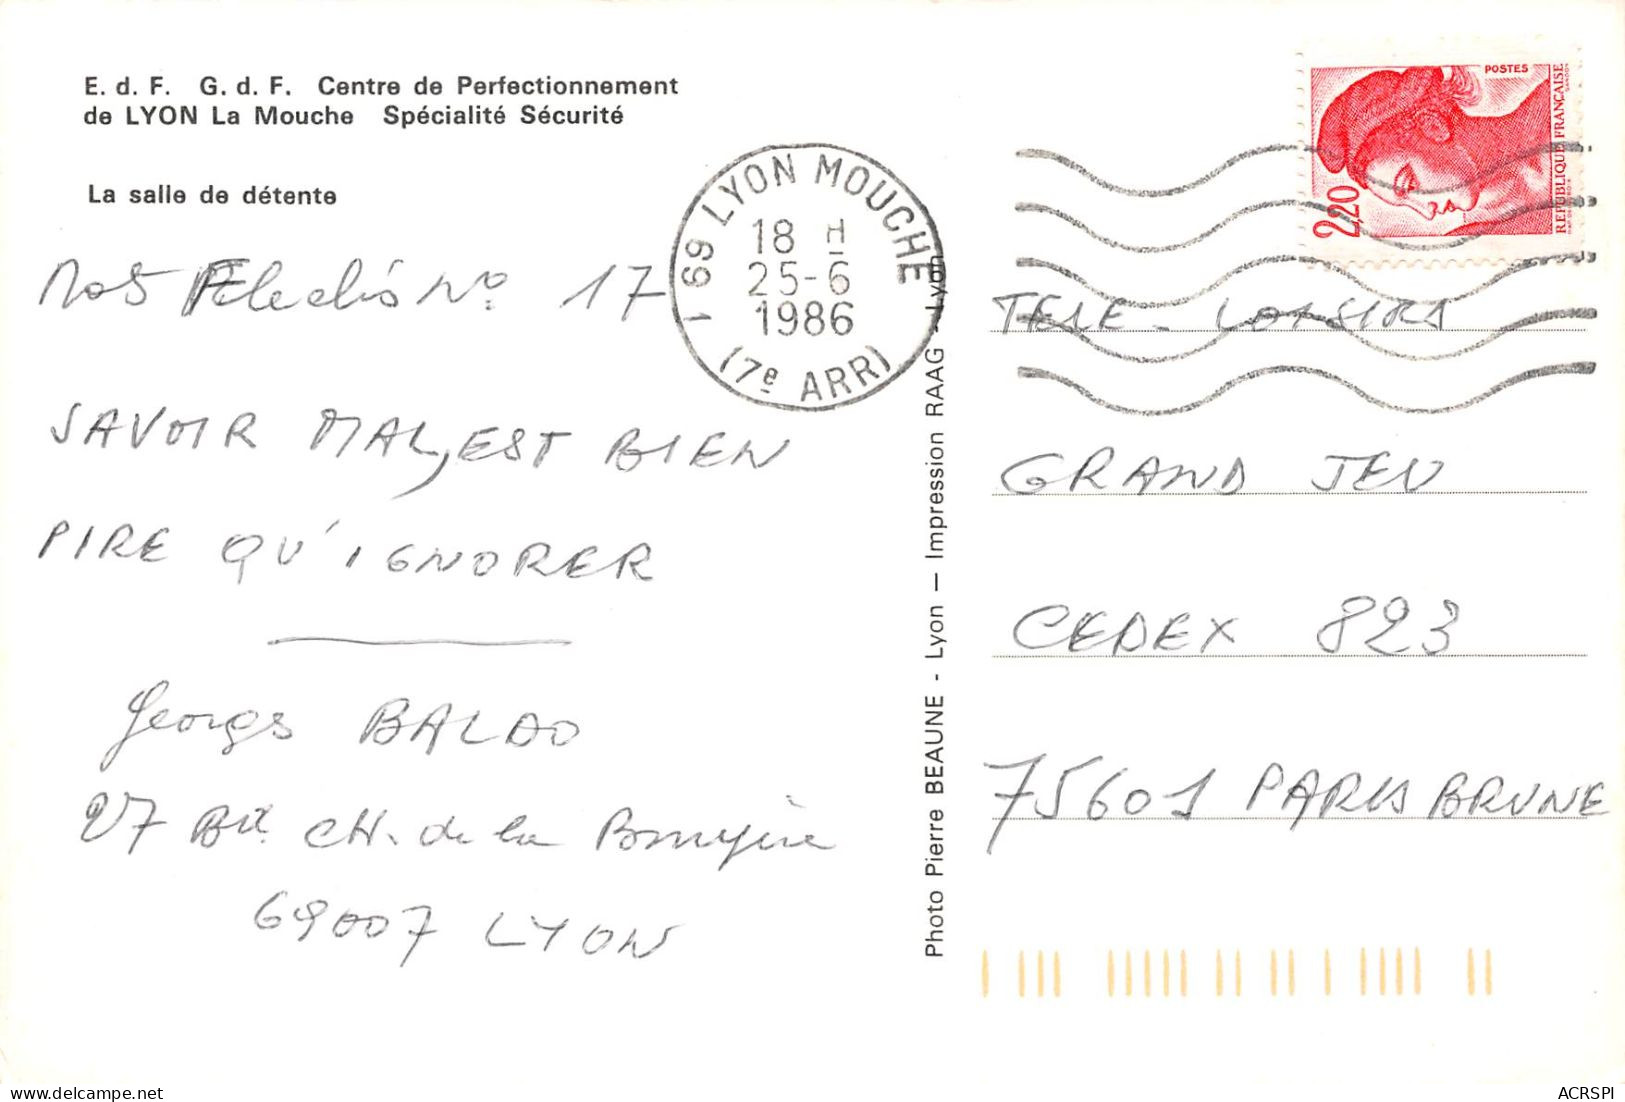 E. d F. G. d F. Centre de Perfectionnement
de LYON La Mouche Spécialité Sécurité
La salle de détente
Mos Flechés No 17
SAVOIR MAL, EST BIEN
PIRE QU'IGNORER
Georges BALDO
27 Bd. CH. de la
69007 LYON
169 LYON MOUCHE
18 H
25-6
1986
(7e ARR)
Photo Pierre BEAUNE - Lyon — Impression RAAG - Lyon
POSTES
2,20
REPUBLIQUE FRANÇAISE
TELE - LOISIRS
GRAND JEU
CEDEX 823
75601 PARIS BRUNE
delcampe.net
ACRSPI